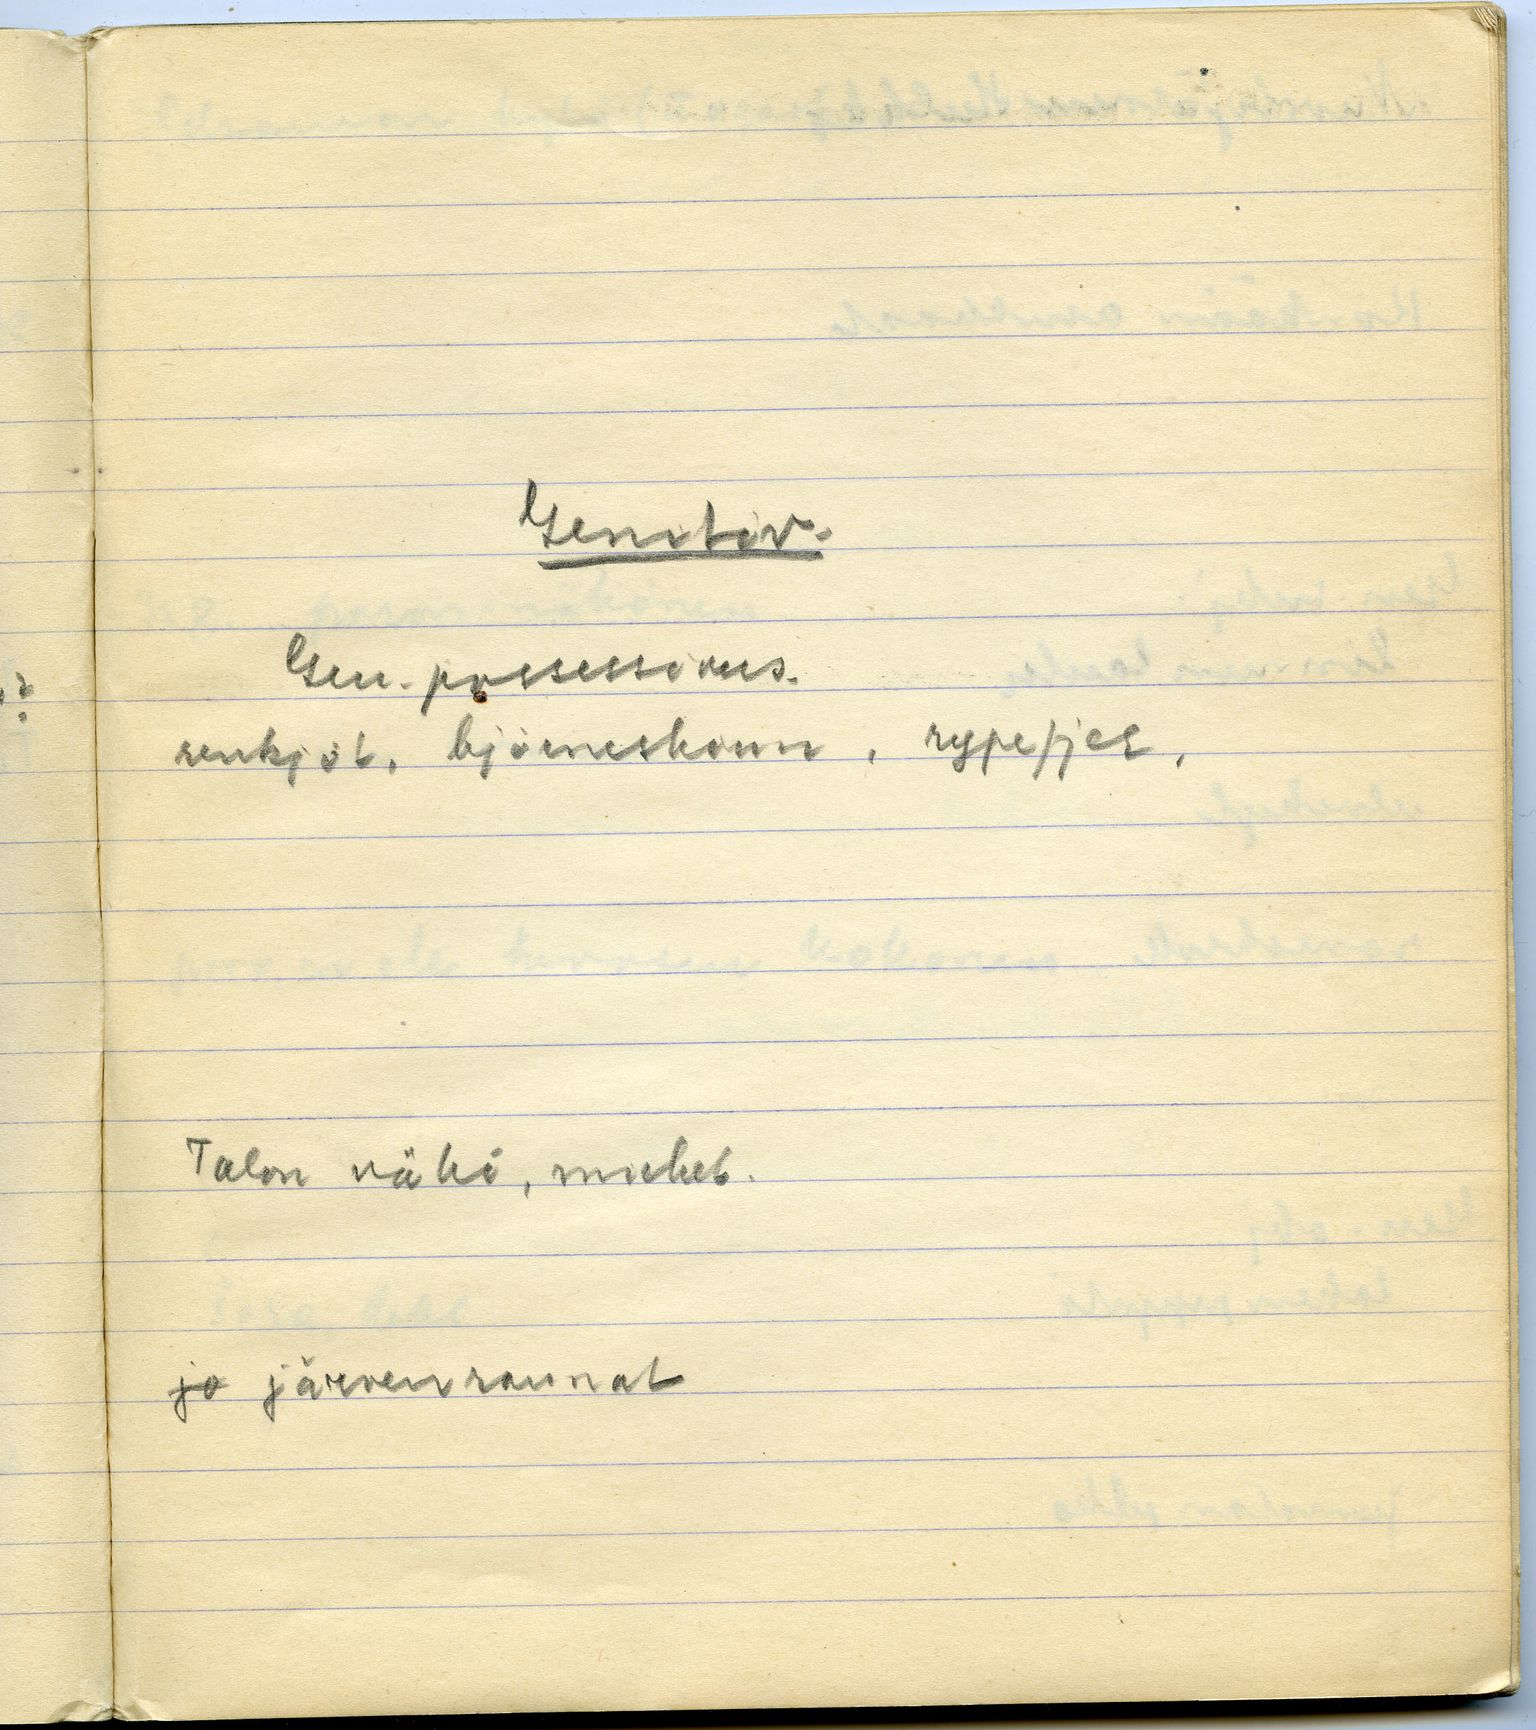 Genitiv.
Gen. possessivus.
renkjøt, bjørneskinn, rypefjær,
Talon väki, miehet.
jo järvenrannat